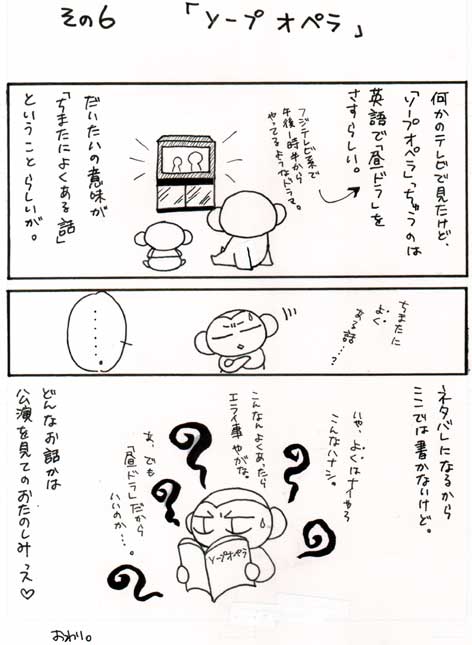 その6　「ソープ オペラ」
何かのテレビで見たけど、
「ソープオペラ」っちゅうのは
英語で「昼ドラ」を
さすらしい。
フジテレビ系で
午後1時半から
やってるようなドラマ。
だいたいの意味が
「ちまたによくある話」
ということらしいが。
ちまたに
よく
ある話…?
………。
ネタバレになるから
ここでは書かないけど。
いや、よくはナイやろ
こんなハナシ。
こんなんよくあったら
エライ事やがな。
あ、でも
「昼ドラ」だから
いいのか…。
ソープオペラ
どんなお話かは
公演を見てのおたのしみっ♡
おわり。